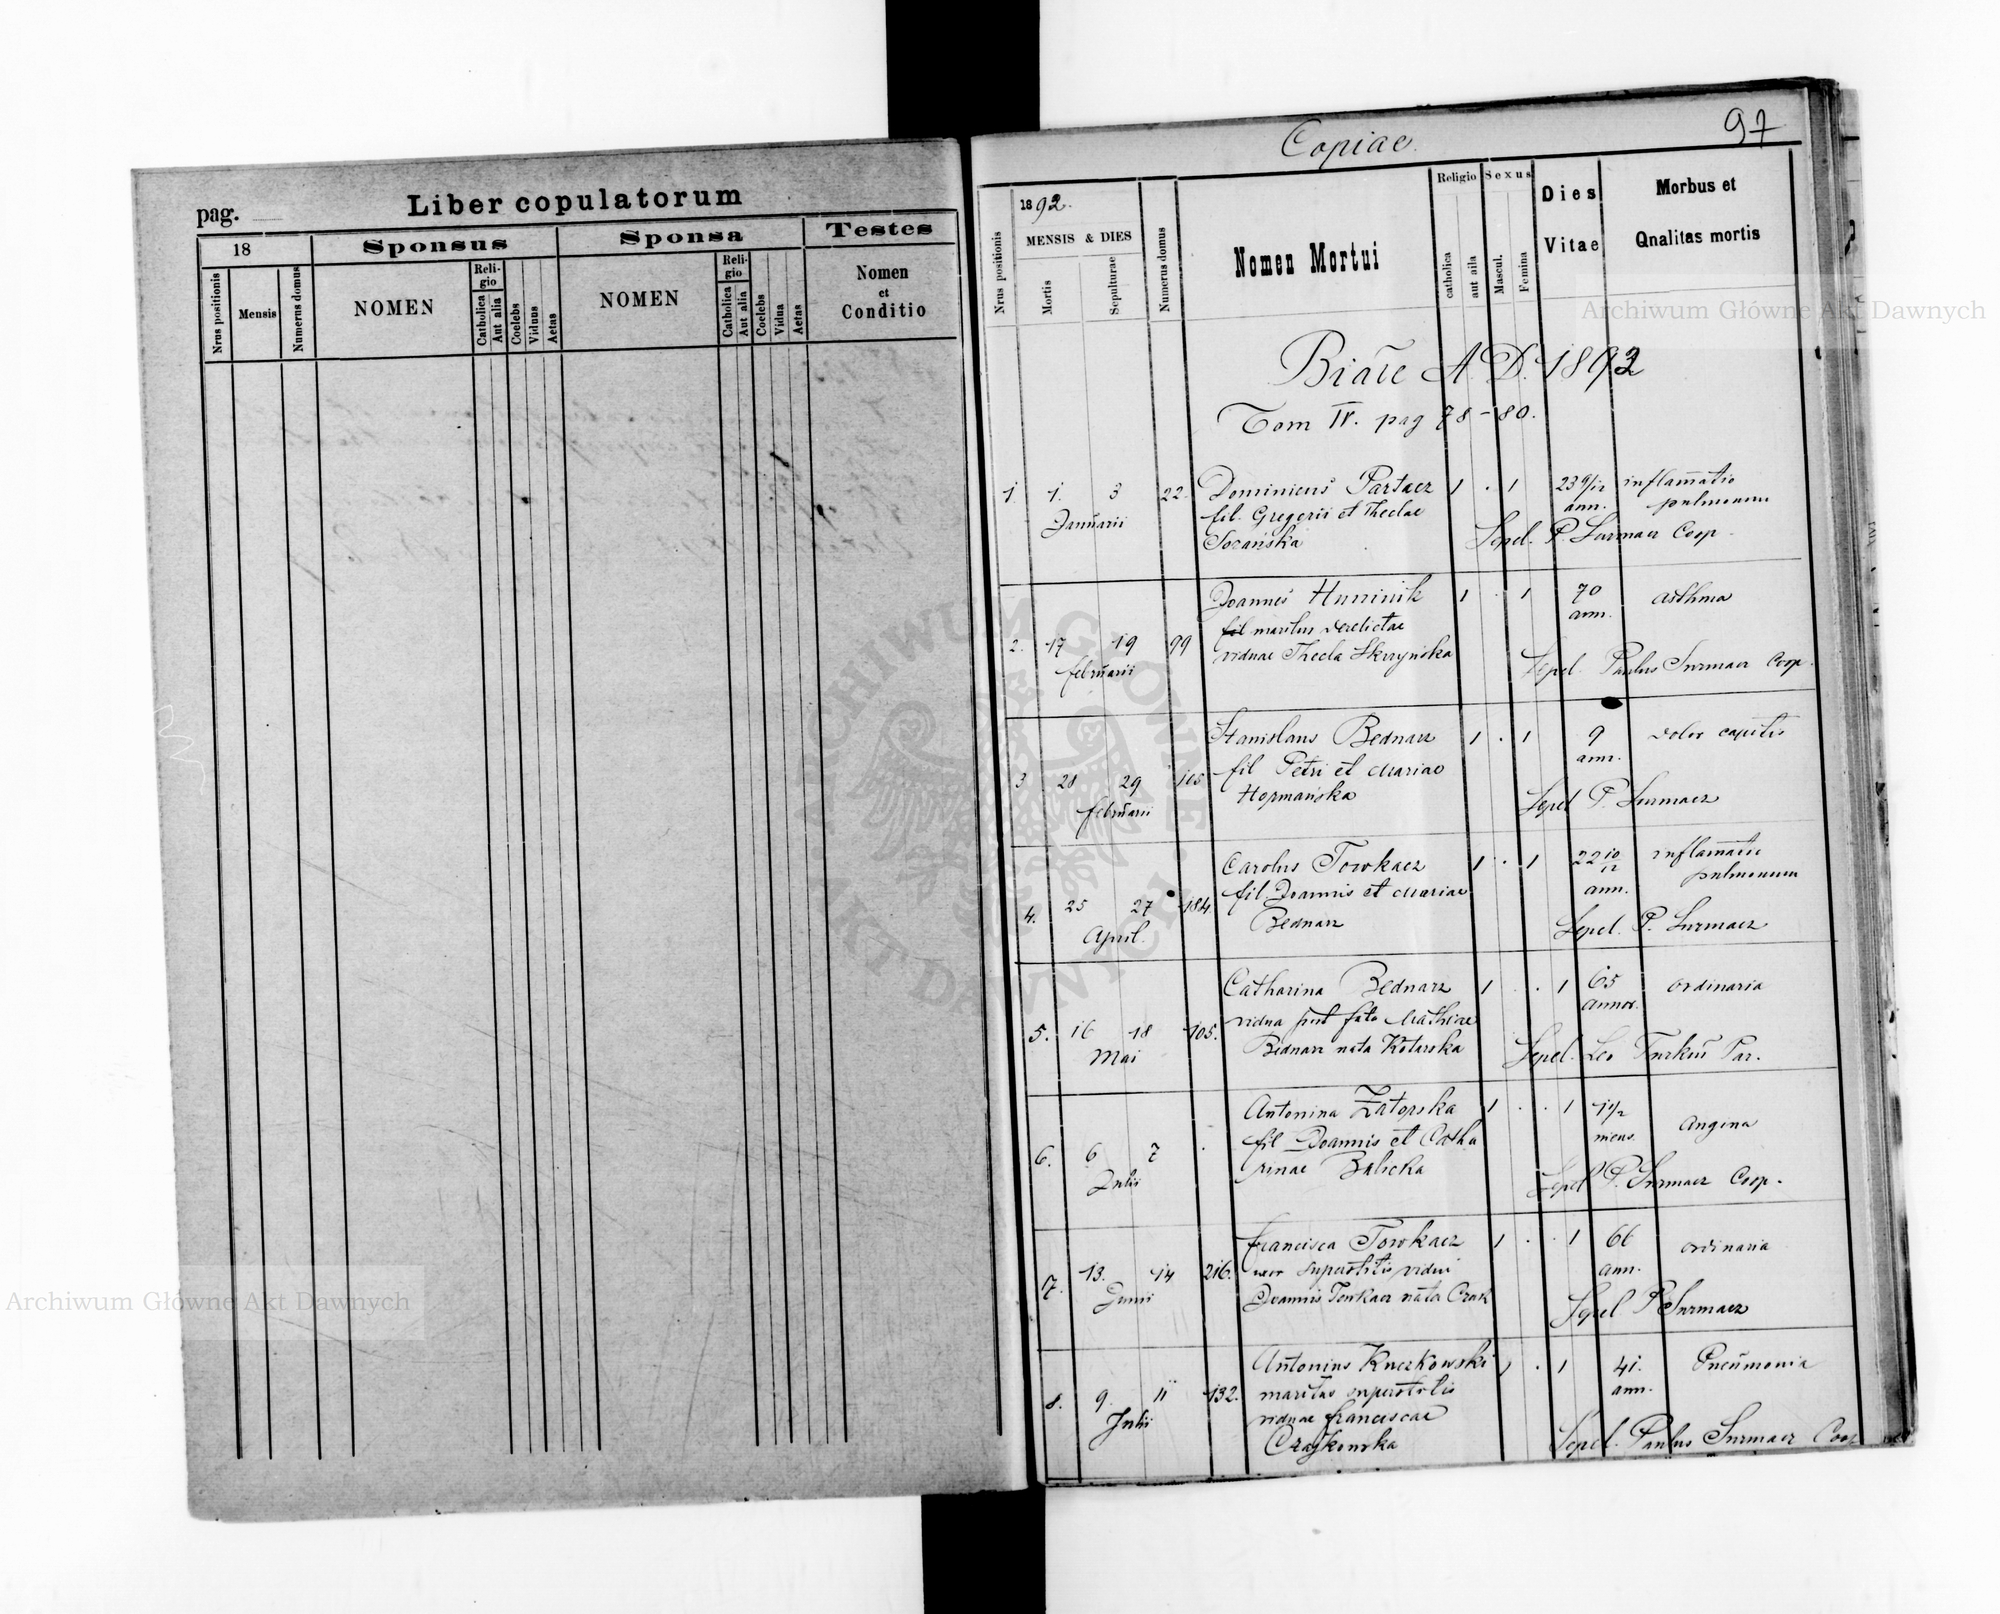 pag.
Liber copulatorum
18
Sponsus
Sponsa
Testes
Nrus positionis
Mensis
Numerus domus
NOMEN
Reli-
gio
Catholica
Aut alia
Coelebs
Viduus
Aetas
NOMEN
Reli-
gio
Catholica
Aut alia
Coelebs
Vidua
Aetas
Nomen
et
Conditio
Copiae.
97
Nrus positionis
1892.
MENSIS & DIES
Mortis
Sepulturae
Numerus domus
Nomen Mortui
Religio
catholica
aut alia
Sexus
Mascul.
Femina
Dies
Vitae
Morbus et
Qnalitas mortis
A. D. 1892
Tom IV. pag 78-80.
1. 1. 3 22. Dominicus Partacz 1 . 1 23 9/12 inflamatio
ann. pulmonum
Januarii fil. Gregorii et Theclae
Sozańska Sepel. P. Surmacz Coop.
2. 17 19 99 Joannes 1 . 1 70 asthma
ann.
februarii fil maritus derelictae
viduae Thecla Skrzyńska Sepel. Paulus Surmacz Coop.
3 28 29 105 Stanislaus Bednarz 1 . 1 9 dolor capitis
ann.
februarii fil Petri et Mariae
Sepel P. Surmacz
4. 25 27 184 Carolus Towkacz 1 . 1 22 10/12 inflamatio
ann. pulmonum
April. fil Joannis et Mariae
Bednarz Sepel. P. Surmacz
5. 16 18 105. Catharina Bednarz 1 . . 1 65 ordinaria
annor.
Mai vidua post fata Mathiae
Bednarz nata Kotarska Sepel. Leo Par.
6. 6 7 . Antonina Zatorska 1 . . 1 1 1/2 angina
mens.
Julii fil Joannis et Catha
rinae Balicka Sepel P. Surmacz Coop.
7. 13. 14 216. Francisca Towkacz 1 . . 1 66 ordinaria
ann.
Junii uxor superstitis vidui
Joannis Towkacz nata Sepel P Surmacz
8. 9. 11 132. Antonius Kuczkowski 1 . 1 41. Pneumonia
ann.
Julii maritus superstitis
viduae Franciscae
Czajkowska Sepel. Paulus Surmacz Coop
Archiwum Główne Akt Dawnych
ARCHIWUM GŁÓWNE AKT DAWNYCH
Archiwum Główne Akt Dawnych